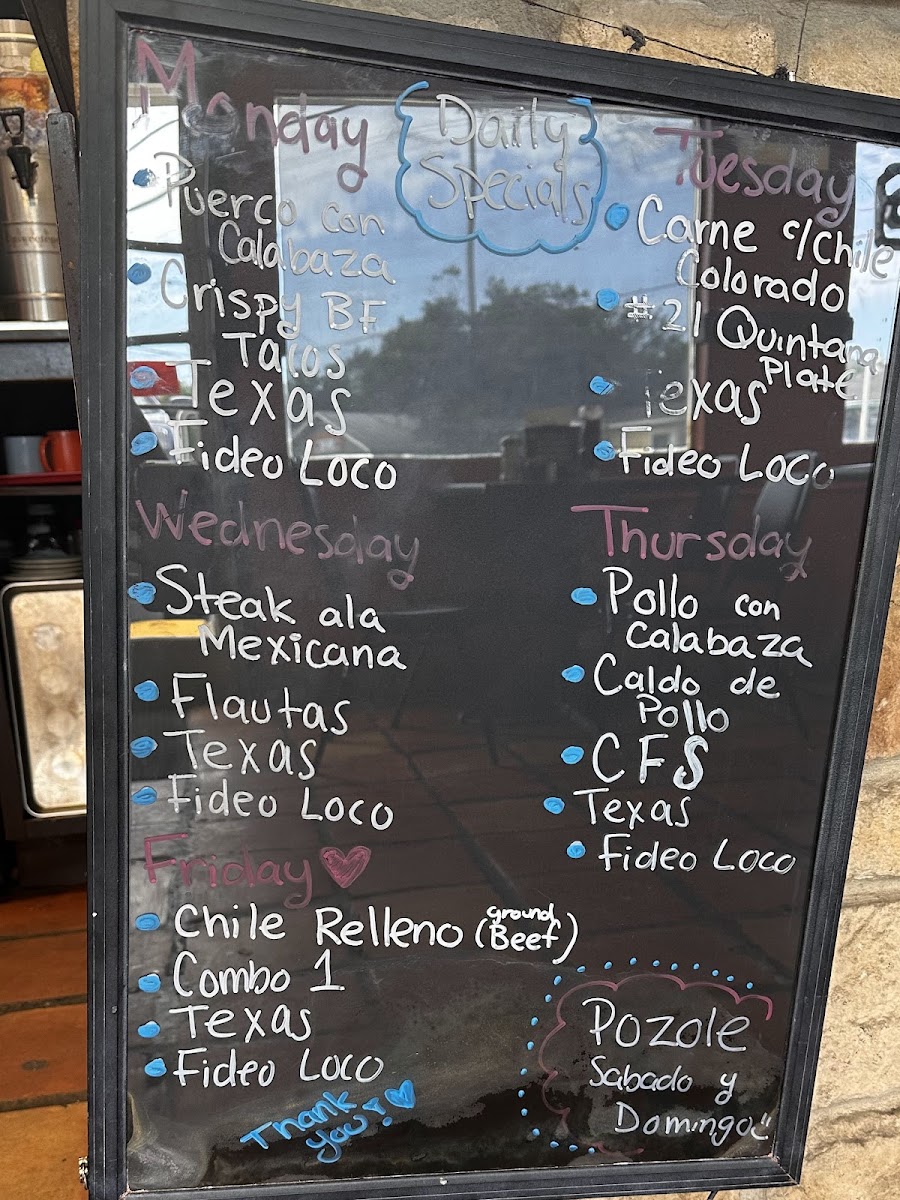 Daily
Specials
Monday
Puerco con
Calabaza
Crispy BF
Tacos
Texas
Fideo Loco
Tuesday
Carne c/Chile
Colorado
#21 Quintana
Plate
Texas
Fideo Loco
Wednesday
Steak ala
Mexicana
Flautas
Texas
Fideo Loco
Thursday
Pollo con
Calabaza
Caldo de
Pollo
CFS
Texas
Fideo Loco
Friday
Chile Relleno (ground
Beef)
Combo 1
Texas
Fideo Loco
Thank
you!
Pozole
Sabado y
Domingo